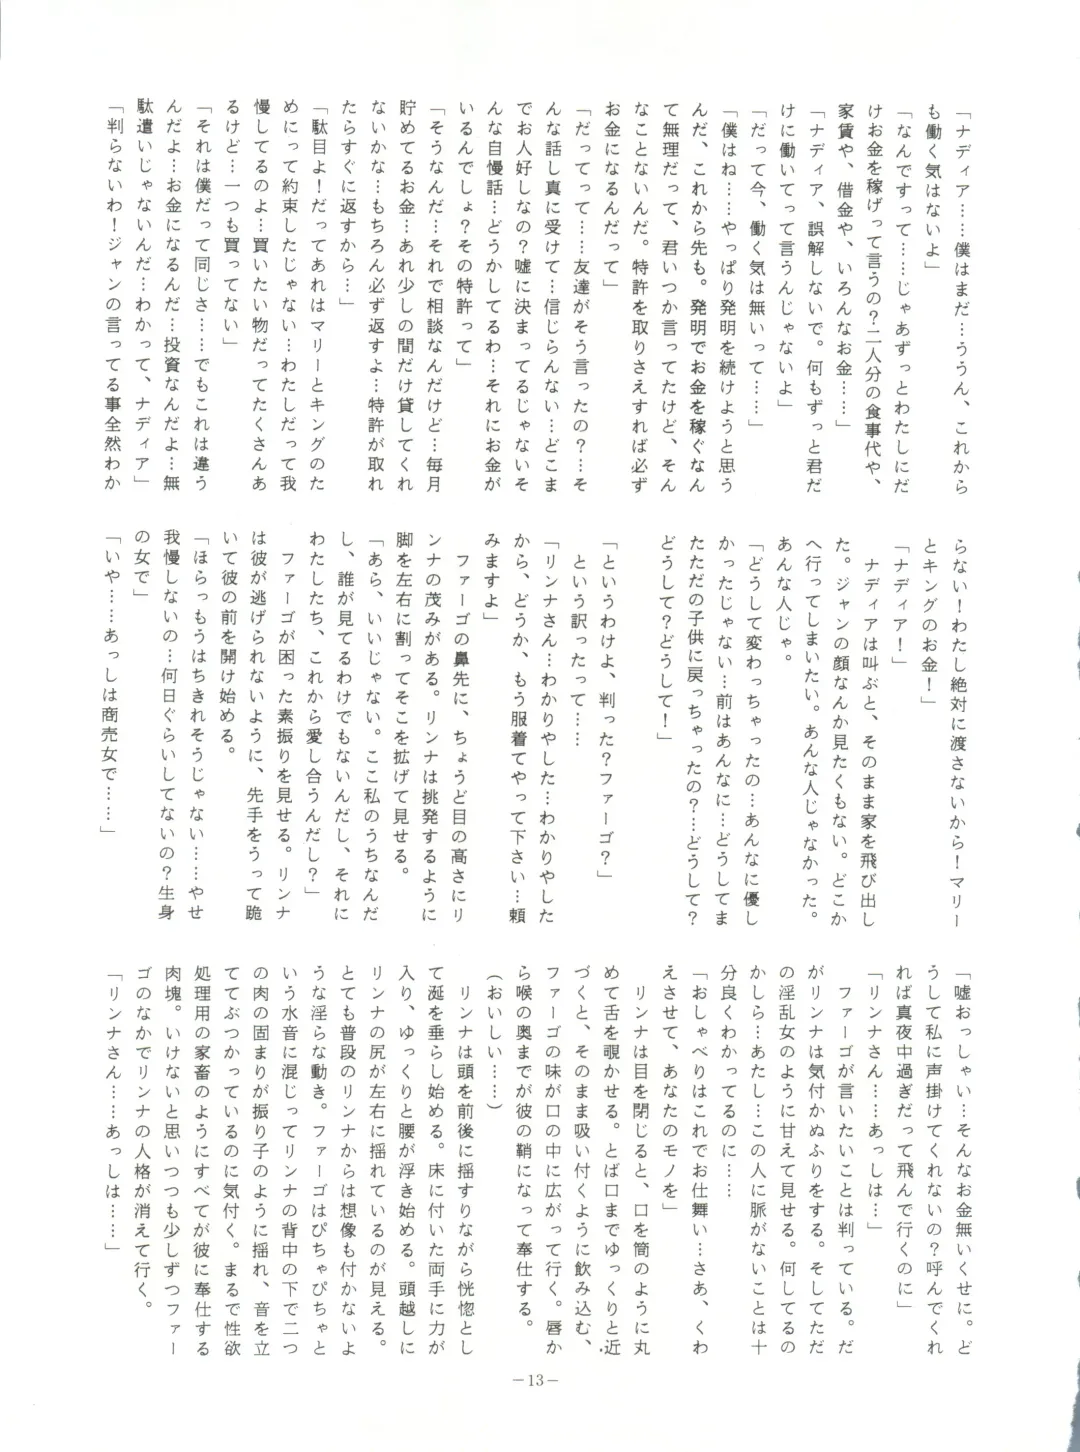 「ナディア…僕はまだ…ううん、これから
も働く気はないよ」
「なんですって……じゃあずっとわたしにだ
けお金を稼げって言うの？二人分の食事代や、
家賃や、借金や、いろんなお金……」
「ナディア、誤解しないで。何もずっと君だ
けに働いてって言うんじゃないよ」
「だって今、働く気は無いって……」
「僕はね……やっぱり発明を続けようと思う
んだ、これから先も。発明でお金を稼ぐなん
て無理だって、君いつか言ってたけど、そん
なことないんだ。特許を取りさえすれば必ず
お金になるんだって」
「だってって……友達がそう言ったの？…そ
んな話し真に受けて…信じらんない…どこま
でお人好しなの？嘘に決まってるじゃないそ
んな自慢話…どうかしてるわ…それにお金が
いるんでしょ？その特許って」
「そうなんだ…それで相談なんだけど…毎月
貯めてるお金…あれ少しの間だけ貸してくれ
ないかな…もちろん必ず返すよ…特許が取れ
たらすぐに返すから…」
「駄目よ！だってあれはマリーとキングのた
めにって約束したじゃない…わたしだって我
慢してるのよ…買いたい物だってたくさんあ
るけど…一つも買ってない」
「それは僕だって同じさ……でもこれは違う
んだよ…お金になるんだ…投資なんだよ…無
駄遣いじゃないんだ…わかって、ナディア」
「判らないわ！ジャンの言ってる事全然わか
らない！わたし絶対に渡さないから！マリー
とキングのお金！」
「ナディア！」
ナディアは叫ぶと、そのまま家を飛び出し
た。ジャンの顔なんか見たくもない。どこか
へ行ってしまいたい。あんな人じゃなかった。
あんな人じゃ。
「どうして変わっちゃったの…あんなに優し
かったじゃない…前はあんなに…どうしてま
たただの子供に戻っちゃったの？…どうして？
どうして？どうして！」
「というわけよ、判った？ファーゴ？」
という訳ったって……
「リンナさん…わかりやした…わかりやした
から、どうか、もう服着てやって下さい…頼
みますよ」
ファーゴの鼻先に、ちょうど目の高さにリ
ンナの茂みがある。リンナは挑発するように
脚を左右に割ってそこを拡げて見せる。
「あら、いいじゃない。ここ私のうちなんだ
し、誰が見てるわけでもないんだし、それに
わたしたち、これから愛し合うんだし？」
ファーゴが困った素振りを見せる。リンナ
は彼が逃げられないように、先手をうって跪
いて彼の前を開け始める。
「ほらっもうはちきれそうじゃない……やせ
我慢しないの…何日ぐらいしてないの？生身
の女で」
「いや……あっしは商売女で……」
「嘘おっしゃい…そんなお金無いくせに。ど
うして私に声掛けてくれないの？呼んでくれ
れば真夜中過ぎだって飛んで行くのに」
「リンナさん……あっしは…」
ファーゴが言いたいことは判っている。だ
がリンナは気付かぬふりをする。そしてただ
の淫乱女のように甘えて見せる。何してるの
かしら…あたし…この人に脈がないことは十
分良くわかってるのに……
「おしゃべりはこれでお仕舞い…さあ、くわ
えさせて、あなたのモノを」
リンナは目を閉じると、口を筒のように丸
めて舌を覗かせる。とば口までゆっくりと近
づくと、そのまま吸い付くように飲み込む、
ファーゴの味が口の中に広がって行く。唇か
ら喉の奥までが彼の鞘になって奉仕する。
（おいしい……）
リンナは頭を前後に揺すりながら恍惚とし
て涎を垂らし始める。床に付いた両手に力が
入り、ゆっくりと腰が浮き始める。頭越しに
リンナの尻が左右に揺れているのが見える。
とても普段のリンナからは想像も付かないよ
うな淫らな動き。ファーゴはぴちゃぴちゃと
いう水音に混じってリンナの背中の下で二つ
の肉の固まりが振り子のように揺れ、音を立
ててぶつかっているのに気付く。まるで性欲
処理用の家畜のようにすべてが彼に奉仕する
肉塊。いけないと思いつつも少しずつファー
ゴのなかでリンナの人格が消えて行く。
「リンナさん……あっしは……」
－13－